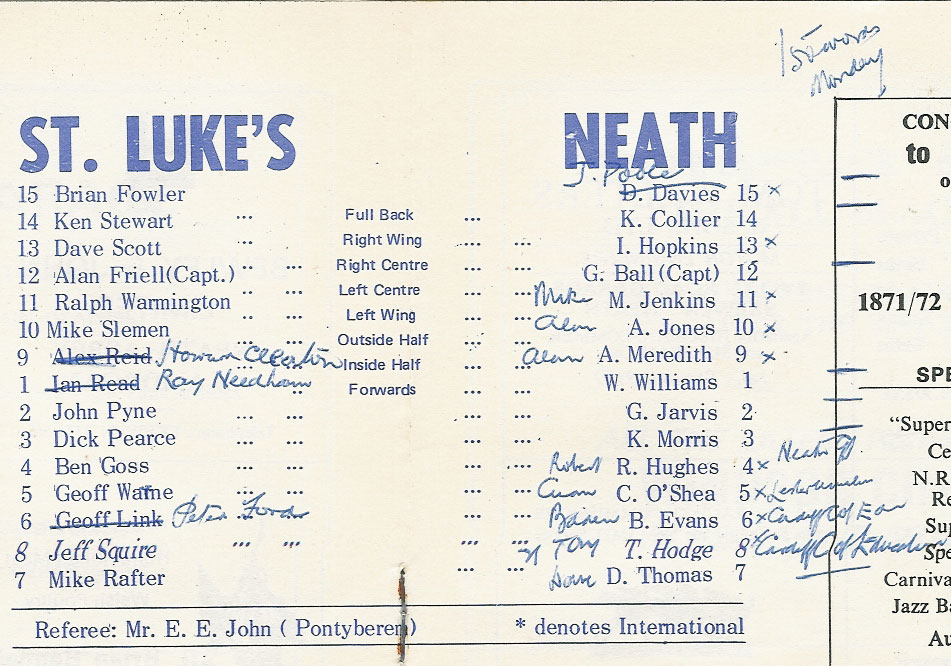 15 words
Monday
ST. LUKE'S NEATH
J. Poole
15 Brian Fowler D. Davies 15 x
14 Ken Stewart ... Full Back ... K. Collier 14
13 Dave Scott ... Right Wing ... ... I. Hopkins 13 x
12 Alan Friell (Capt.) ... ... Right Centre ... ... G. Ball (Capt) 12
11 Ralph Warmington ... ... Left Centre ... ... Mike M. Jenkins 11 x
10 Mike Slemen ... ... Left Wing ... ... Alan A. Jones 10 x
9 Alex Reid Howard Outside Half ... ... Alan A. Meredith 9 x
1 Ian Read Ray Needham Inside Half ... ... W. Williams 1
2 John Pyne ... ... Forwards ... ... G. Jarvis 2
3 Dick Pearce ... ... ... ... K. Morris 3
4 Ben Goss ... ... ... ... Robert R. Hughes 4 x Neath
5 Geoff Warne ... ... ... ... C. O'Shea 5 x
6 Geoff Link Peter Ford ... ... B. Evans 6 x Cardiff C of Edu
8 Jeff Squire ... ... ... Tony T. Hodge 8 x Cardiff C of Education
7 Mike Rafter ... ... Dave D. Thomas 7
Referee: Mr. E. E. John ( Pontyberem) * denotes International
CON
to
o
1871/72
SPE
"Super
Ce
N.R.
Re
Sup
Spe
Carniva
Jazz Ba
Au